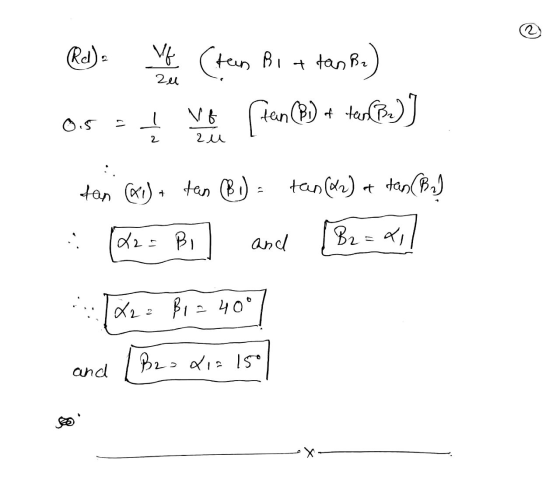 ②
(Rd) = Vf/2u (tan β1 + tan β2)
0.5 = 1/2 Vf/2u [tan(β1) + tan(β2)]
∴
tan (α1) + tan (β1) = tan(α2) + tan(β2)
∴ α2 = β1 and β2 = α1
∴ α2 = β1 = 40°
and β2 = α1 = 15°
x